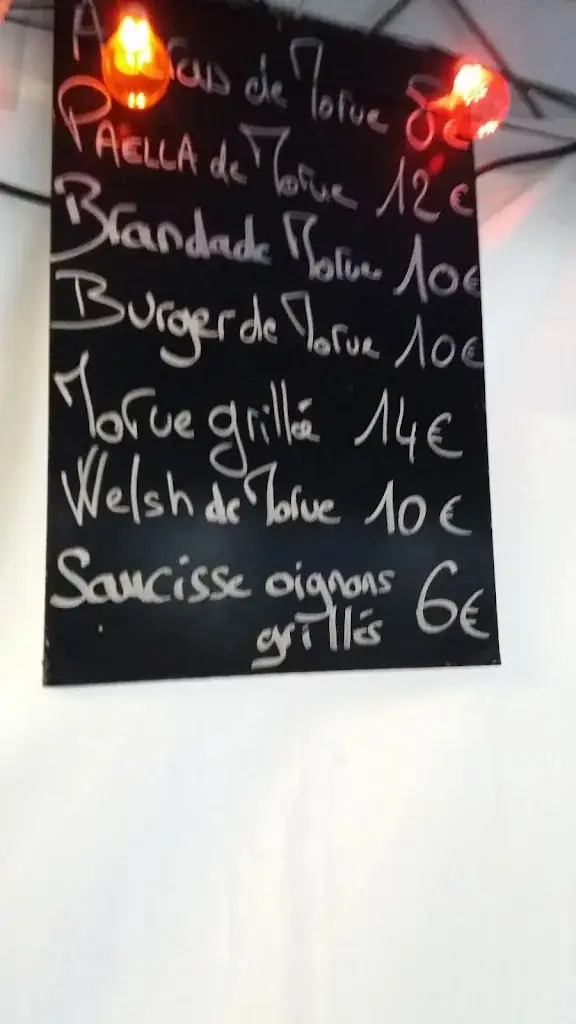 de Morue 8€
PAELLA de Morue 12€
Brandade Morue 10€
Burger de Morue 10€
Morue grillée 14€
Welsh de Morue 10€
Saucisse oignons 6€
grillés